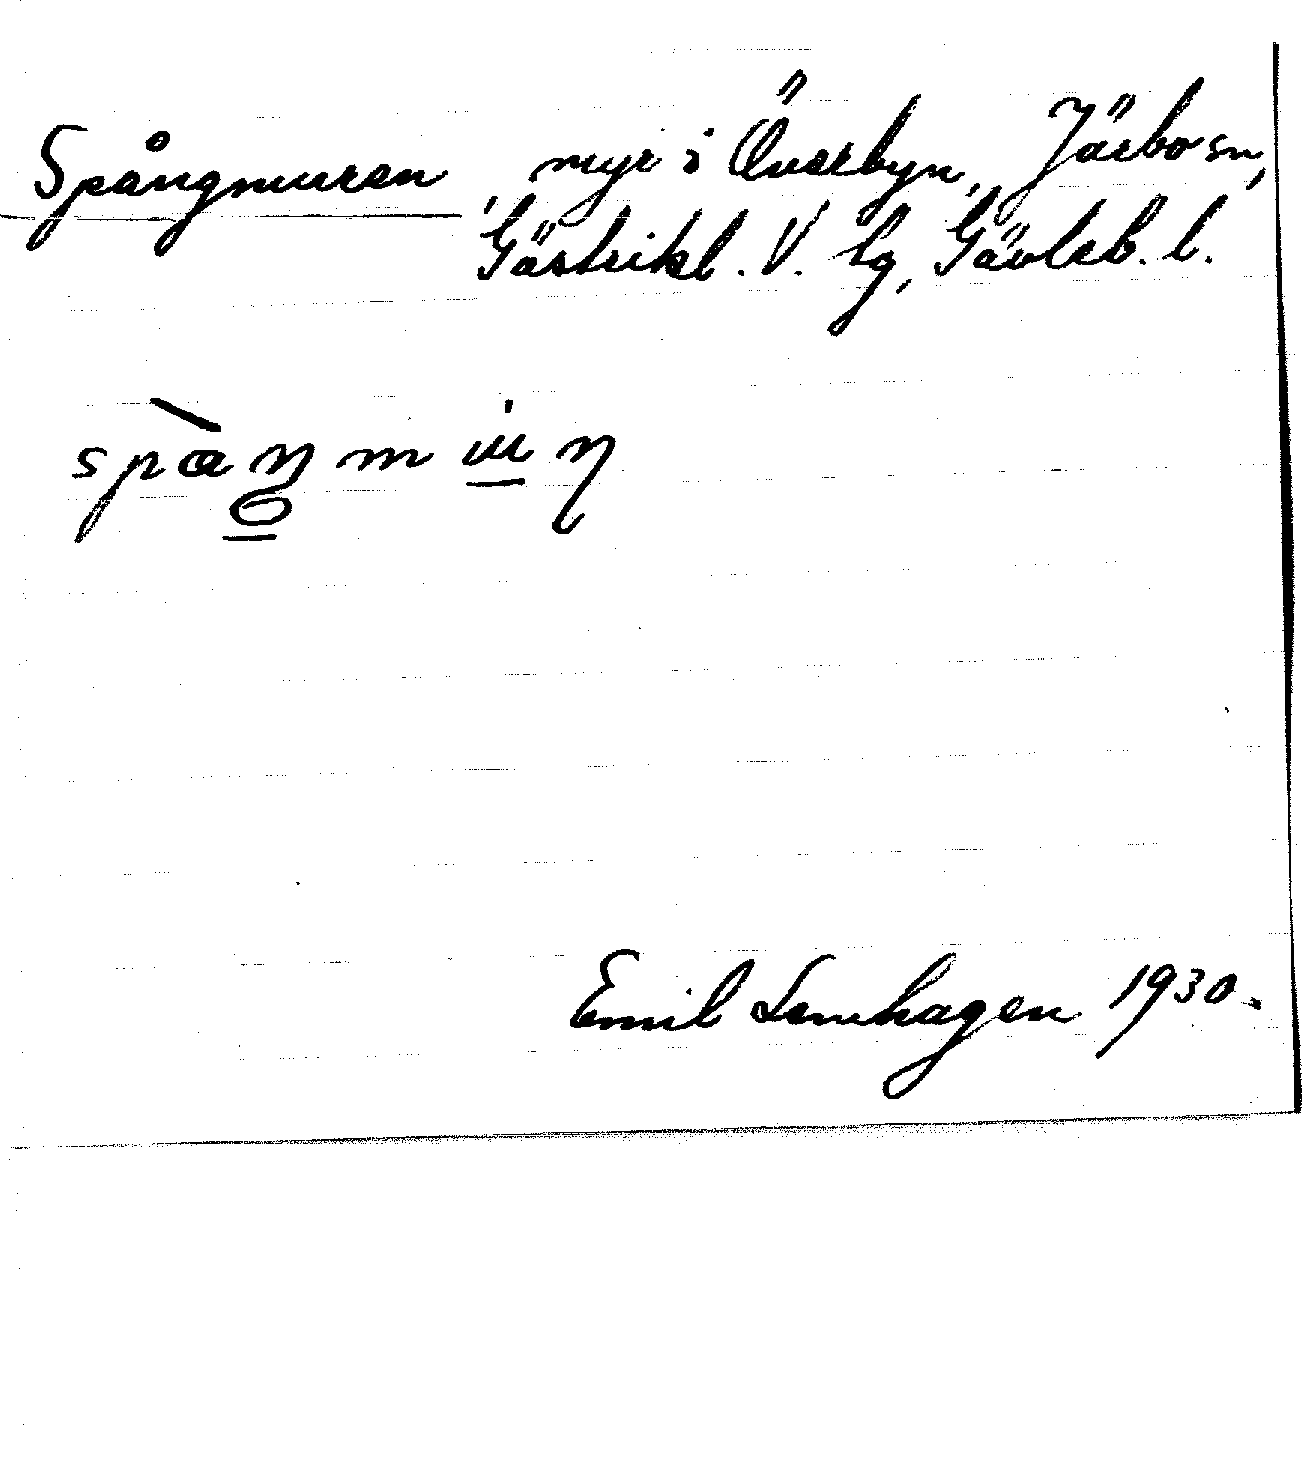 Spångmuren, myr i Överbyn, Järbo sn,
Gästrikl. V. tg, Gävleb. l.
Emil Lenhagen 1930.